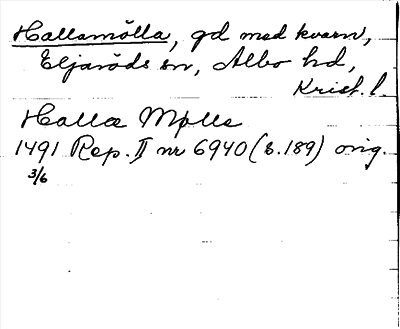 Hallamölla, gd med kvarn,
Eljaröds sn, Albo hd,
Krist. l.
Halla Mølle
1491 Rep. II nr 6940 (s. 189) orig.
3/6